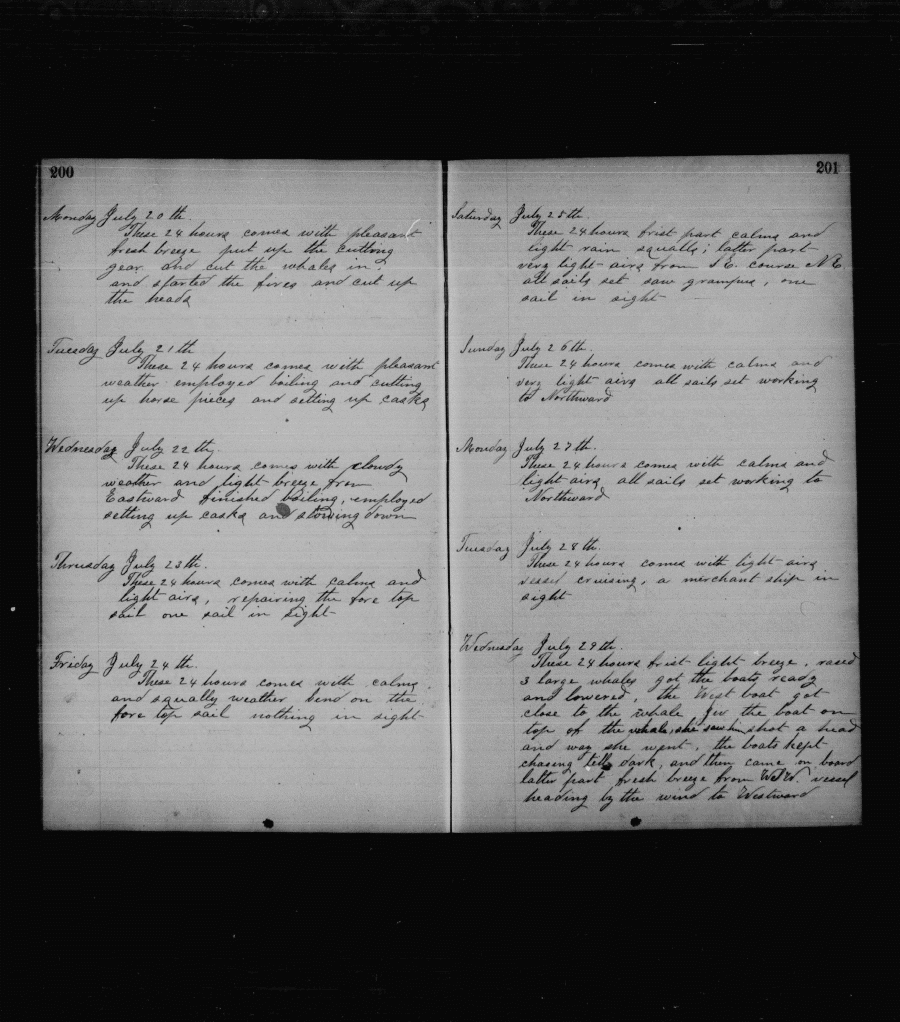 200
Monday July 20th.
These 24 hours comes with pleasant
fresh breeze put up the cutting
gear and cut the whales in,
and started the fires and cut up
the heads
Tuesday July 21th
These 24 hours comes with pleasant
weather employed boiling and cutting
up horse pieces and setting up casks
Wednesday July 22th.
These 24 hours comes with cloudy
weather and light breeze from
Eastward finished boiling, employed
setting up casks and stowing down
Thrusday July 23th.
These 24 hours comes with calms and
light airs, repairing the fore top
sail one sail in sight
Friday July 24th.
These 24 hours comes with calms
and squally weather bend on the
fore top sail nothing in sight
201
Saturday July 25th.
These 24 hours frist part calms and
light rain squalls; latter part
very light airs from S.E. course N.E.
all sails set saw grampus, one
sail in sight
Sunday July 26th.
These 24 hours comes with calms and
very light airs all sails set working
to Northward
Monday July 27th.
These 24 hours comes with calms and
light airs all sails set working to
Northward
Tuesday July 28th.
These 24 hours comes with light airs
vessel cruising, a merchant ship in
sight
Wednesday July 29th.
These 24 hours frist light breeze, rased
3 large whales got the boats ready
and lowered, the West boat got
close to the whale the boat on
top of the whale, she saw him shot a head
and way she went, the boats kept
chasing tell dark, and then came on board
latter part fresh breeze from vessel
heading by the wind to Westward